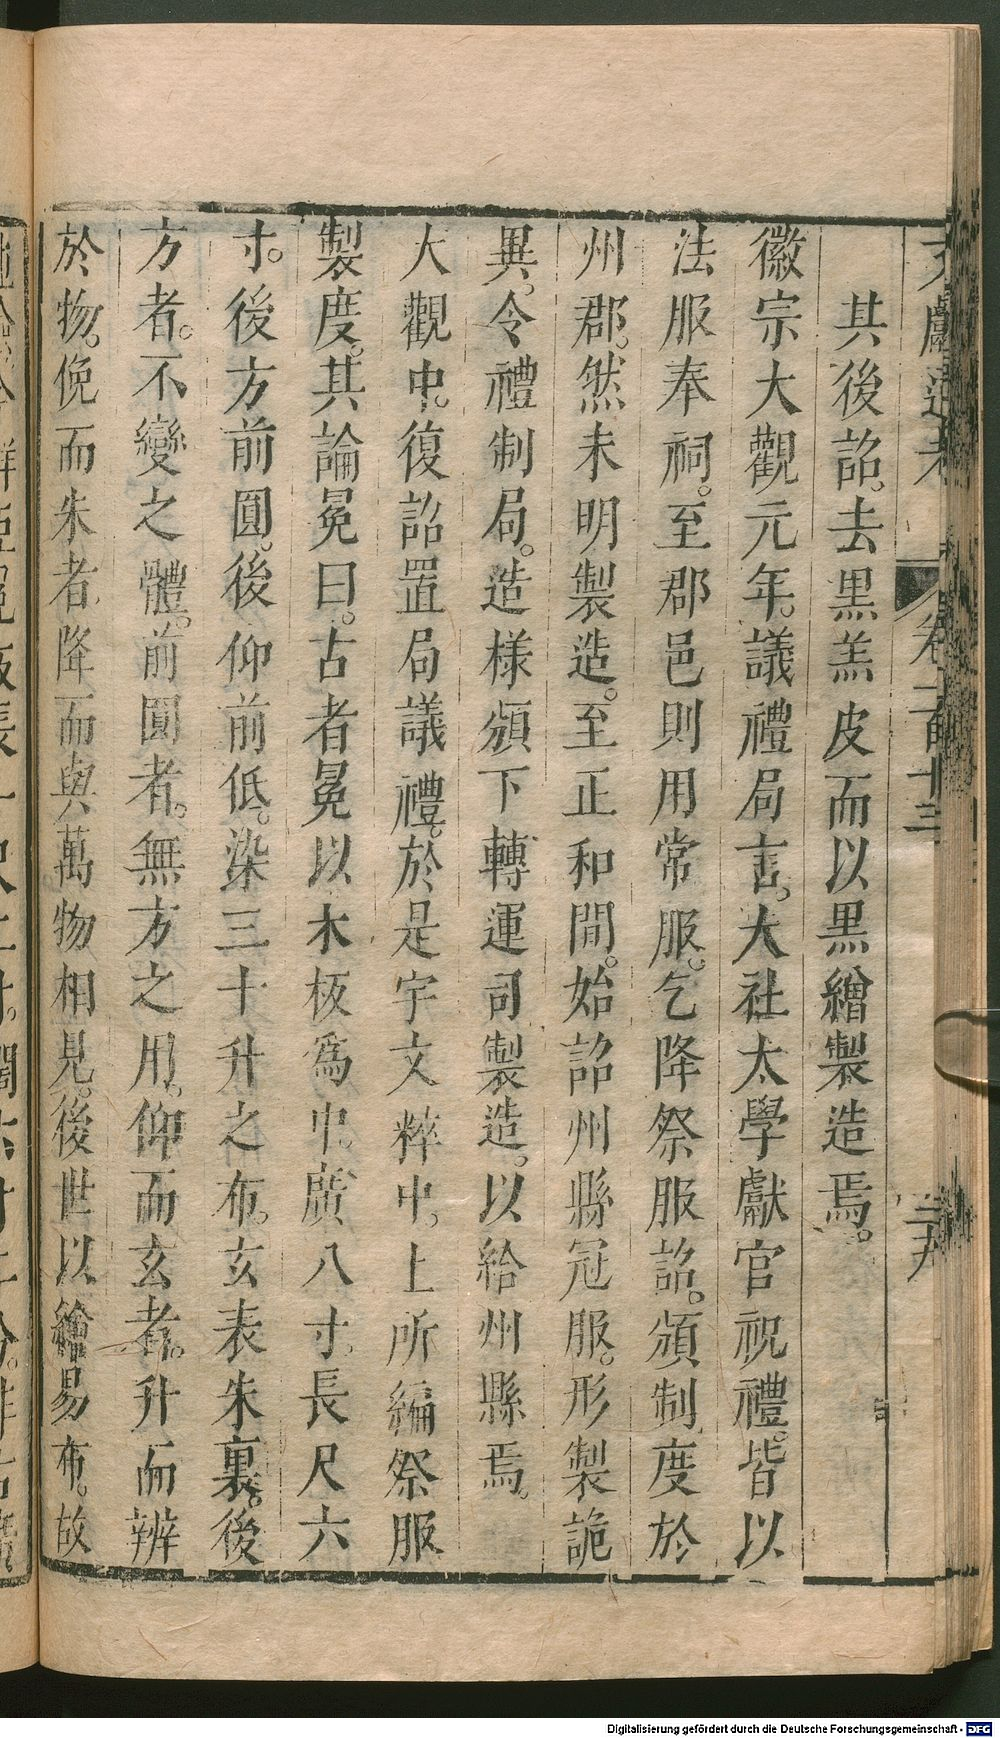 文獻通考 卷一百十三
其後詔。去黑羔皮而以黑繒製造焉。
徽宗大觀元年。議禮局言。大社太學獻官祝禮。皆以
法服奉祠。至郡邑則用常服。乞降祭服詔。頒制度於
州郡。然未明製造。至正和間。始詔州縣冠服。形製詭
異。令禮制局。造樣頒下轉運司製造。以給州縣焉。
大觀中。復詔置局議禮。於是宇文粹中。上所編祭服
製度。其論冕曰。古者冕以木板爲中。廣八寸。長尺六
寸。後方前圓。後仰前低。染三十升之布。玄表朱裏。後
方者。不變之體。前圓者。無方之用。仰而玄者。升而辨
於物。俛而朱者。降而與萬物相見。後世以繒易布。故
Digitalisierung gefördert durch die Deutsche Forschungsgemeinschaft - DFG